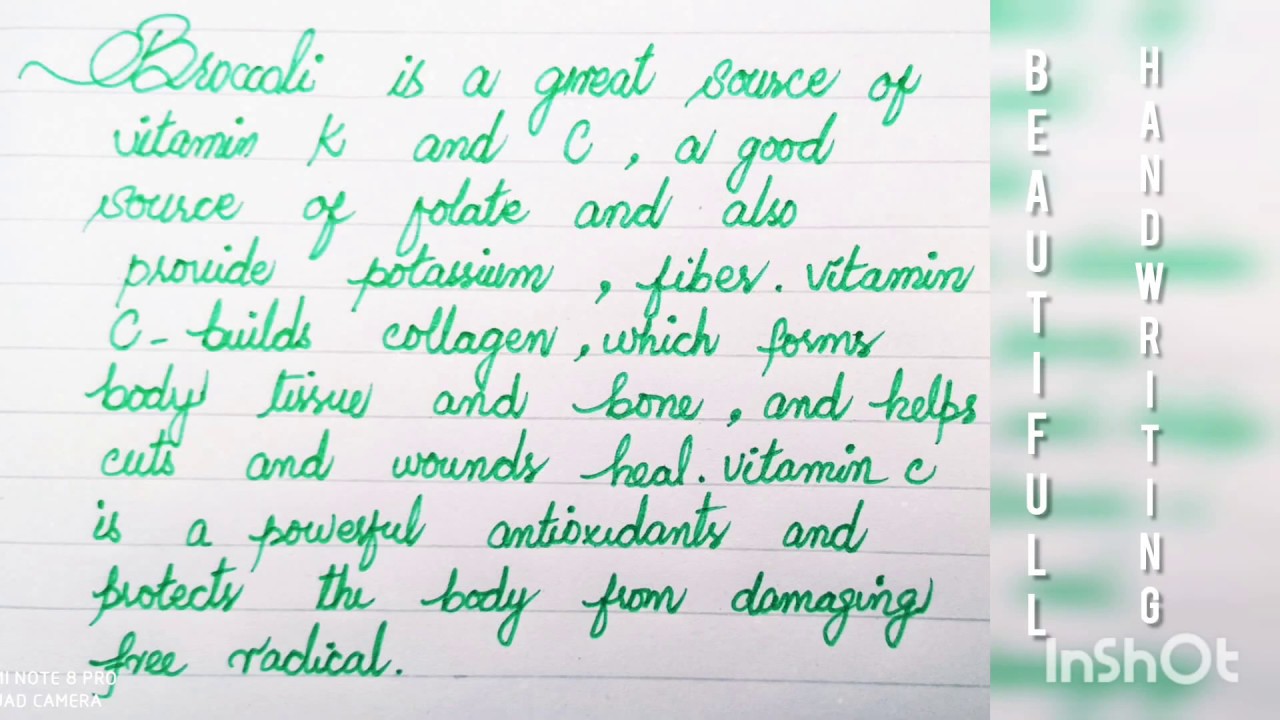 Broccoli is a great source of
vitamin K and C , a good
source of folate and also
provide potassium , fiber . vitamin
C - builds collagen , which forms
body tissue and bone , and helps
cuts and wounds heal . vitamin c
is a powerful antioxidants and
protects the body from damaging
free radical .
MI NOTE 8 PRO
UAD CAMERA
BEAUTIFULL
HANDWRITING
InShOt